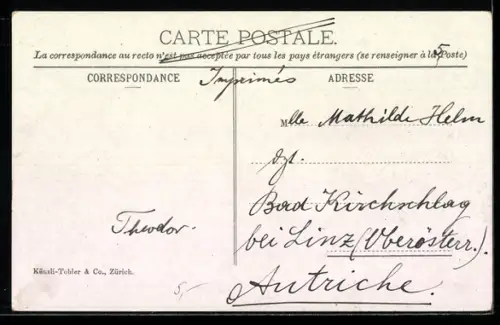 CARTE POSTALE.
La correspondance au recto n'est pas acceptée par tous les pays étrangers (se renseigner à la Poste)
5
CORRESPONDANCE
Imprimés
ADRESSE
Mlle Mathilde Helm
dzt.
Bad Kirchschlag
bei Linz (Oberösterr.).
Autriche.
Theodor.
Künzli-Tobler & Co., Zürich.
5,-